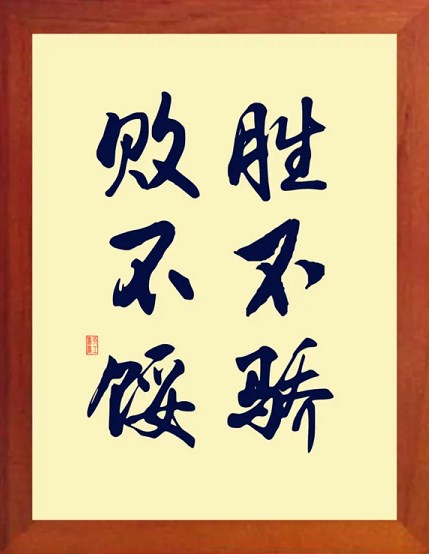 胜不骄
败不馁